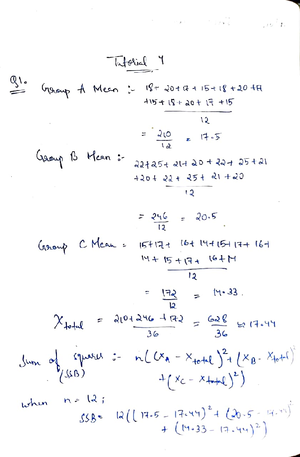 Tutorial 4
Q1. Group A Mean :- 18+ 20+17+15+18+20+17
+15+18+20+17+15
12
= 210/12 = 17.5
Group B Mean :- 22+25+21+20+22+25+21
+20+22+25+21+20
12
= 246/12 = 20.5
Group C Mean = 15+17+16+14+15+17+16+
14+15+17+16+14
12
= 172/12 = 14.33
X total = 210+246+172/36 = 628/36 = 17.44
Sum of squares :- n((XA - Xtotal)² + (XB - Xtotal)²
(SSB) + (XC - Xtotal)²)
when n = 12;
SSB = 12((17.5 - 17.44)² + (20.5 - 17.44)²
+ (14.33 - 17.44)²)